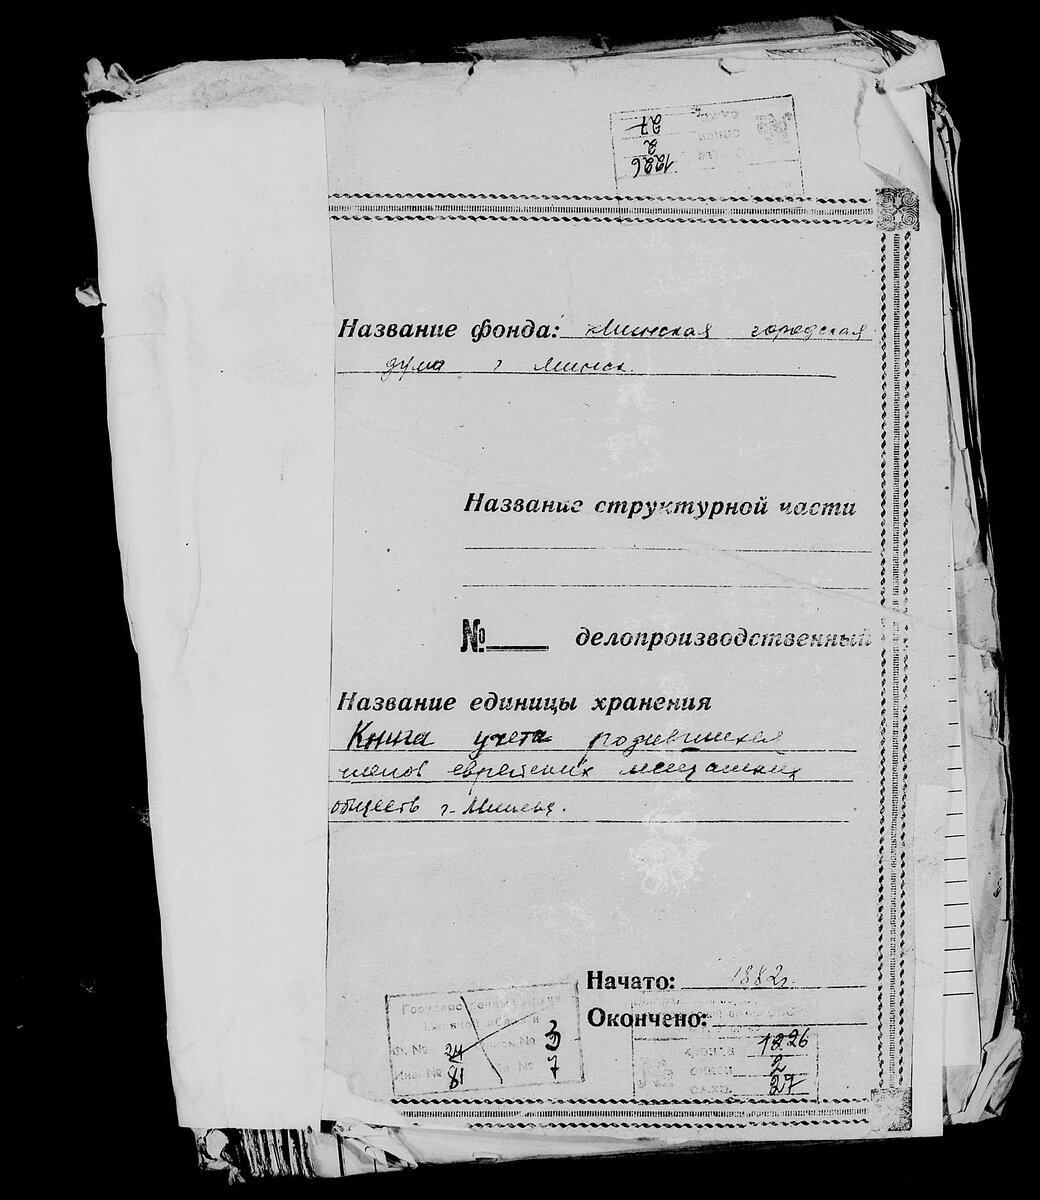 1226
2
27
Название фонда: Минская городская
дума г Минск.
Название структурной части
№ делопроизводственный
Название единицы хранения
Книга учета родившихся
членов еврейских мещанских
обществ г. Минска.
Начато: 1882г.
Окончено:
Ф. № 24 № 3
Инв. № 81 № 7
ФОНД 1226
ОПИСИ 2
27